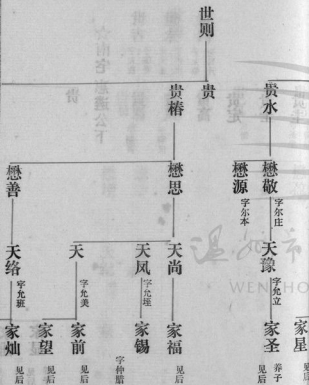 世则
贵水
贵
贵椿
懋敬 字尔庄
懋源 字尔本
懋思
懋善
天豫 字允立
天尚
天凤 字允垤
天 字允美
天络 字允班
家星
家圣 养子 见后
家福 见后
家锡 字仲腊
家前 见后
家望 见后
家灿 见后
温 州 市
WENZHO